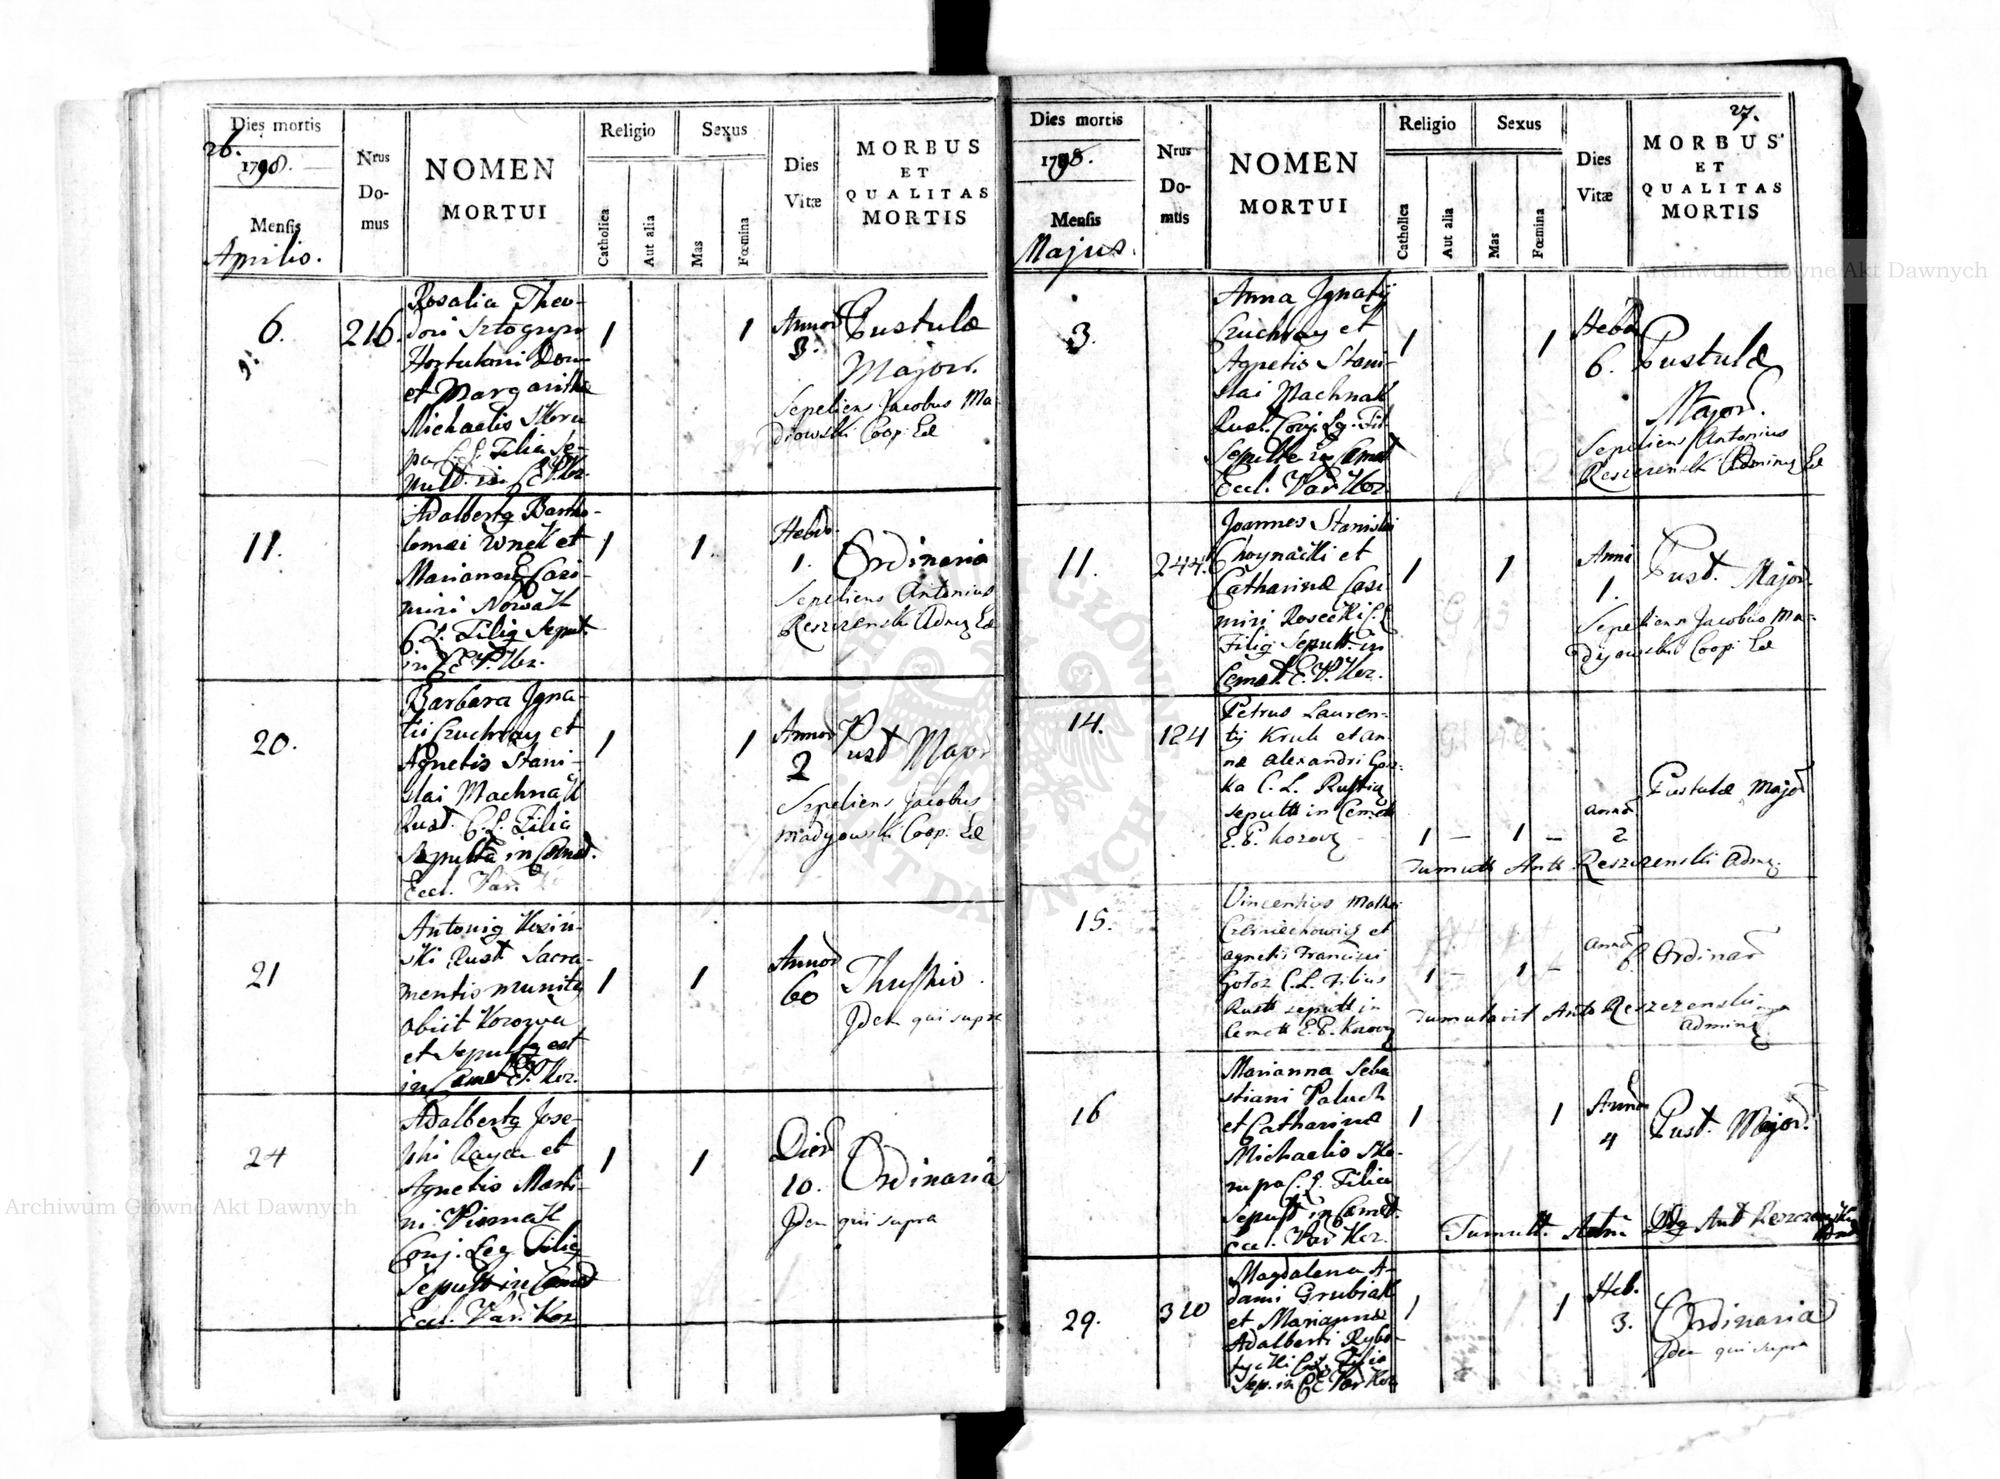 26.
Dies mortis
1798.
Mensis
Aprilis.
Nrus
Do-
mus
NOMEN
MORTUI
Religio
Catholica
Aut alia
Sexus
Mas
Fœmina
Dies
Vitæ
MORBUS
ET
QUALITAS
MORTIS
6.
216.
Rosalia Theo-
dori
Hortulani
et Margarithæ
Michaelis Skoru
pa C. L. Filia Se-
pult. in
1
1
Annor
3.
Pustulæ
Major.
Sepeliens Jacobus Ma-
dyowski Coop. Ec
11.
Adalbertg Bartho-
lomæi Wnek et
Mariannæ Casi-
miri Nowak
C. L. Filig Sepult.
in C. E. P. Kor.
1
1.
Hebd.
1.
Ordinaria
Sepeliens Antonius
Reszezenski Admg Ec
20.
Barbara Igna-
tii Czuchray et
Agnetis Stani-
slai Machnak
Rust. C. L. Filia
Sepulta in Cemet.
Eccl. Par.
1
1
Annor
2
Pust Major
Sepeliens Jacobus
Madyowski Coop. Ec
21
Antonig Kosin-
ski Rust Sacra-
mentis munitg
obiit Korozva
et Sepultg est
in Cemet E. P. Kor.
1
1
Annor
60
Thussio.
Idem qui supra
24
Adalbertg Jose-
phi Rayca et
Agnetis Marti-
ni Pismak
Conj. Leg. Filig
Sepult in Cemet
Eccl. Par. Kor
1
1
Dier
10.
Ordinaria
Idem qui supra
27.
Dies mortis
1798.
Mensis
Majus.
Nrus
Do-
mus
NOMEN
MORTUI
Religio
Catholica
Aut alia
Sexus
Mas
Fœmina
Dies
Vitæ
MORBUS
ET
QUALITAS
MORTIS
3.
Anna Ignatij
Czuchray et
Agnetis Stani-
slai Machnak
Rust. Conj. Lg. Fil.
Sepulta in Cemet
Eccl. Par Kor
1
1
Hebd
6.
Pustulæ
Major.
Sepeliens Antonius
Reszezenski Adming Ec
11.
244.
Joannes Stanislai
Choynacki et
Catharinæ Casi
miri Rosecki C. L
Filig Sepult. in
Cemet. E. P. Kor.
1
1
Anni
1.
Pust. Major
Sepeliens Jacobus Ma-
dyowski Coop. Ec
14.
124
Petrus Lauren-
tij Kruk et An-
næ Alexandri Gor-
ka C. L. Rustig
sepultg in Cemet
E. P. Korovg
1 -
1 -
annor
2
Pustulæ Major
Tumult Ant. Reszezenski Admg.
15.
Vincentius Mathæi
et
agnetis Francisci
Gotoz C. L. Filius
Rust sepult in
Cemet E. P. Korovg
1 -
1 -
annor
6
Ordinar
Tumulavit Ant Reszezenski
adming
16
Marianna Seba
stiani Paluch
et Catharinæ
Michaelis Sko-
rupa C. L. Filia
Sepult in Cemet.
Eccl. Par Kor.
1
1
Annor
4
Pust. Major.
Tumult. Ant Reszezenski
29.
310
Magdalena A-
dami Grubiak
et Mariannæ
Adalberti Rybo-
tycki C. L. Filia
Sep. in C. E. Par Kor
1
1
Heb.
3.
Ordinaria
Idem qui supra
Archiwum Główne Akt Dawnych
Archiwum Główne Akt Dawnych
ARCHIWUM GŁÓWNE AKT DAWNYCH